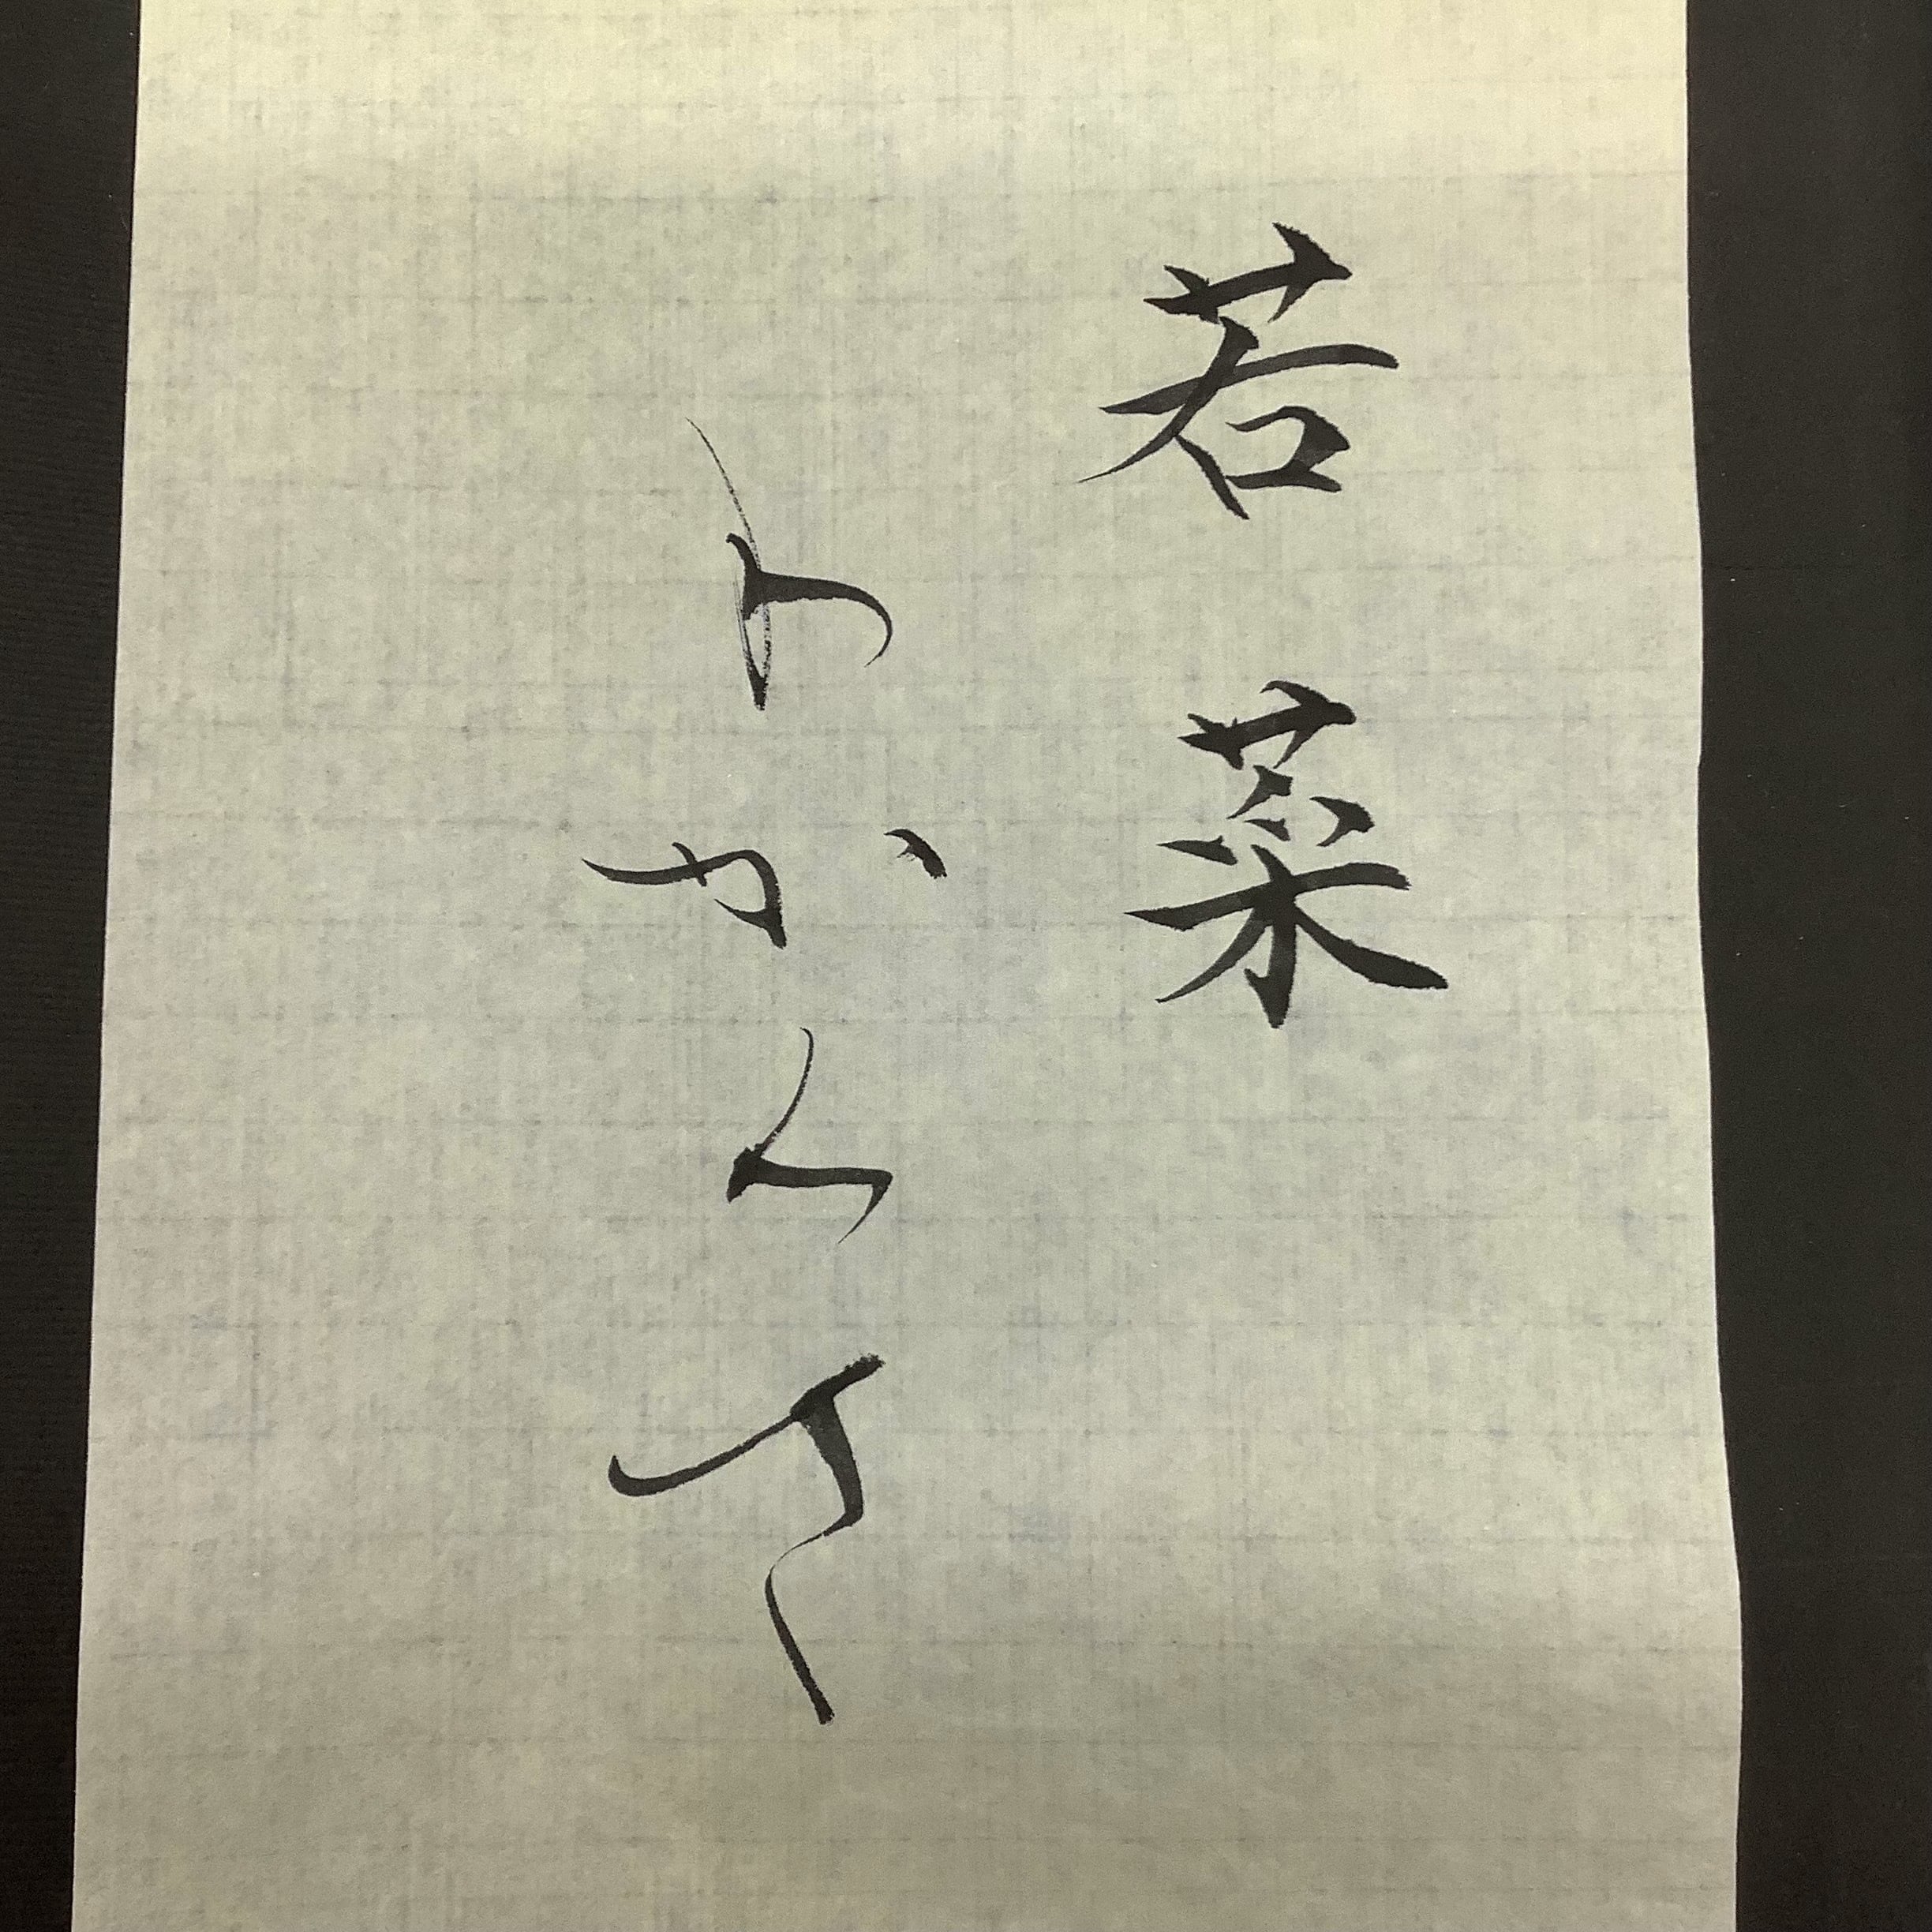 若菜
わかくさ